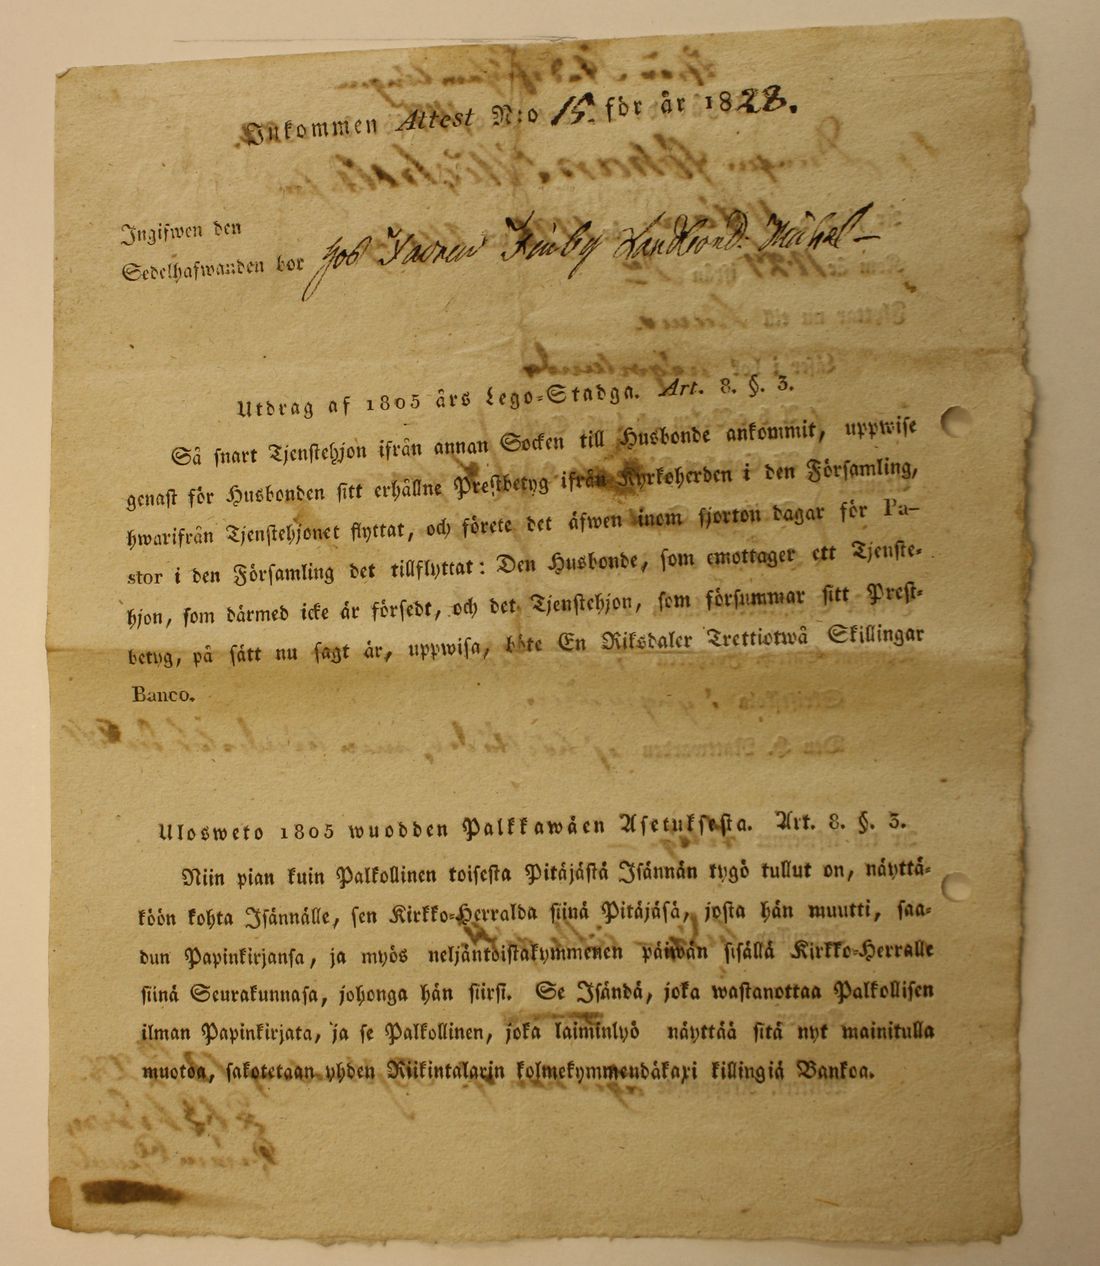 Inkommen Attest N:o 15. för år 1828.
Ingifwen den
Sedelhafwanden bor hos Finby Landbond. Michel
Utdrag af 1805 års Lego-Stadga. Art. 8. §. 3.
Så snart Tjenstehjon ifrån annan Socken till Husbonde ankommit, uppwise
genast för Husbonden sitt erhållne Prestbetyg ifrån Kyrkoherden i den Församling,
hwarifrån Tjenstehjonet flyttat, och förete det äfwen inom fjorton dagar för Pa-
stor i den Församling det tillflyttat: Den Husbonde, som emottager ett Tjenste-
hjon, som därmed icke är försedt, och det Tjenstehjon, som försummar sitt Prest-
betyg, på sätt nu sagt är, uppwisa, böte En Riksdaler Trettiotwå Skillingar
Banco.
Ulosweto 1805 wuodden Palkkawäen Asetuksesta. Art. 8. §. 3.
Niin pian kuin Palkollinen toisesta Pitäjästä Isännän tygö tullut on, näyttä-
köön kohta Isännälle, sen Kirkko-Herralda siinä Pitäjäsä, josta hän muutti, saa-
dun Papinkirjansa, ja myös neljäntoistakymmenen päiwän sisällä Kirkko-Herralle
siinä Seurakunnasa, johonga hän siirsi. Se Isändä, joka wastanottaa Palkollisen
ilman Papinkirjata, ja se Palkollinen, joka laiminlyö näyttää sitä nyt mainitulla
muotoa, sakotetaan yhden Riikintalarin kolmekymmendäkaxi killingiä Bankoa.